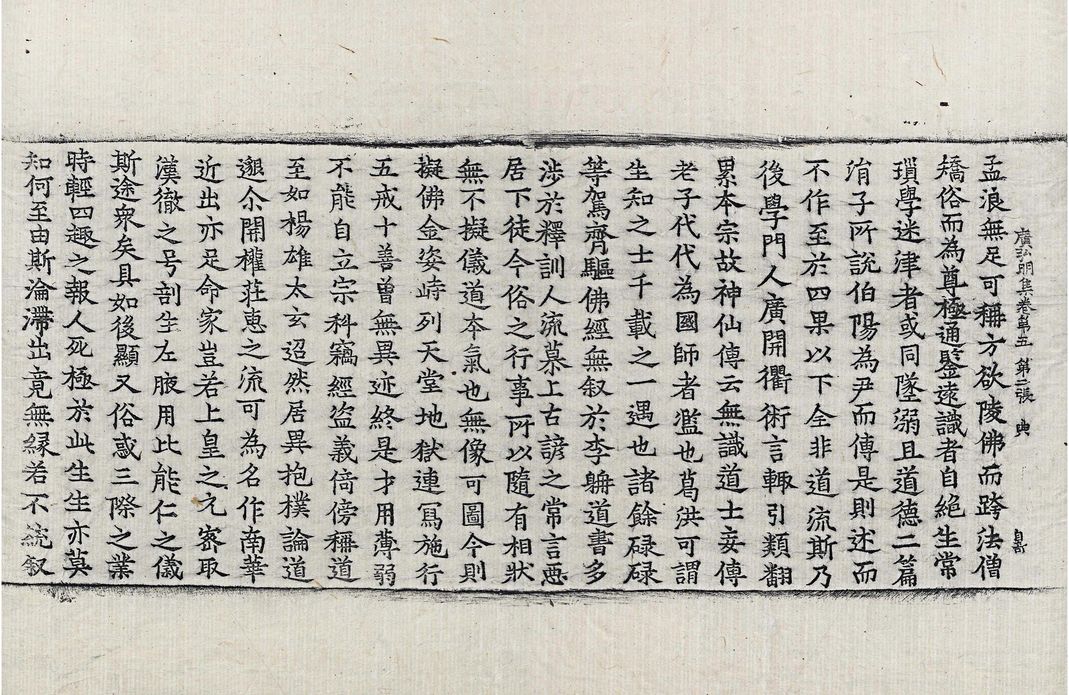 廣弘明集卷第五 第二張 典
孟浪無足可稱方欲陵佛而跨法僧
矯俗而為尊極通鑒遠識者自絕生常
瑣學迷津者或同墜溺且道德二篇
㳙子所說伯陽為尹而傳是則述而
不作至於四果以下全非道流斯乃
後學門人廣開衢術言輙引類翻
累本宗故神仙傳云無識道士妄傳
老子代代為國師者濫也葛洪可謂
生知之士千載之一遇也諸餘碌碌
等駕齊驅佛經無叙於李聃道書多
涉於釋訓人流慕上古諺之常言惡
居下徒今俗之行事所以隨有相狀
無不擬儀道夲氣也無像可圖今則
擬佛金姿峙列天堂地獄連寫施行
五戒十善曾無異迹終是才用薄弱
不能自立宗科竊經盜義倍傍稱道
至如楊雄太玄迢然居異抱樸論道
邈尒開權莊惠之流可為名作南華
近出亦足命家豈若上皇之元密取
漢徹之号剖生左腋用比能仁之儀
斯途衆矣具如後顯又俗惑三際之業
時輕四趣之報人死極於此生生亦莫
知何至由斯淪滯出竟無緣若不統叙